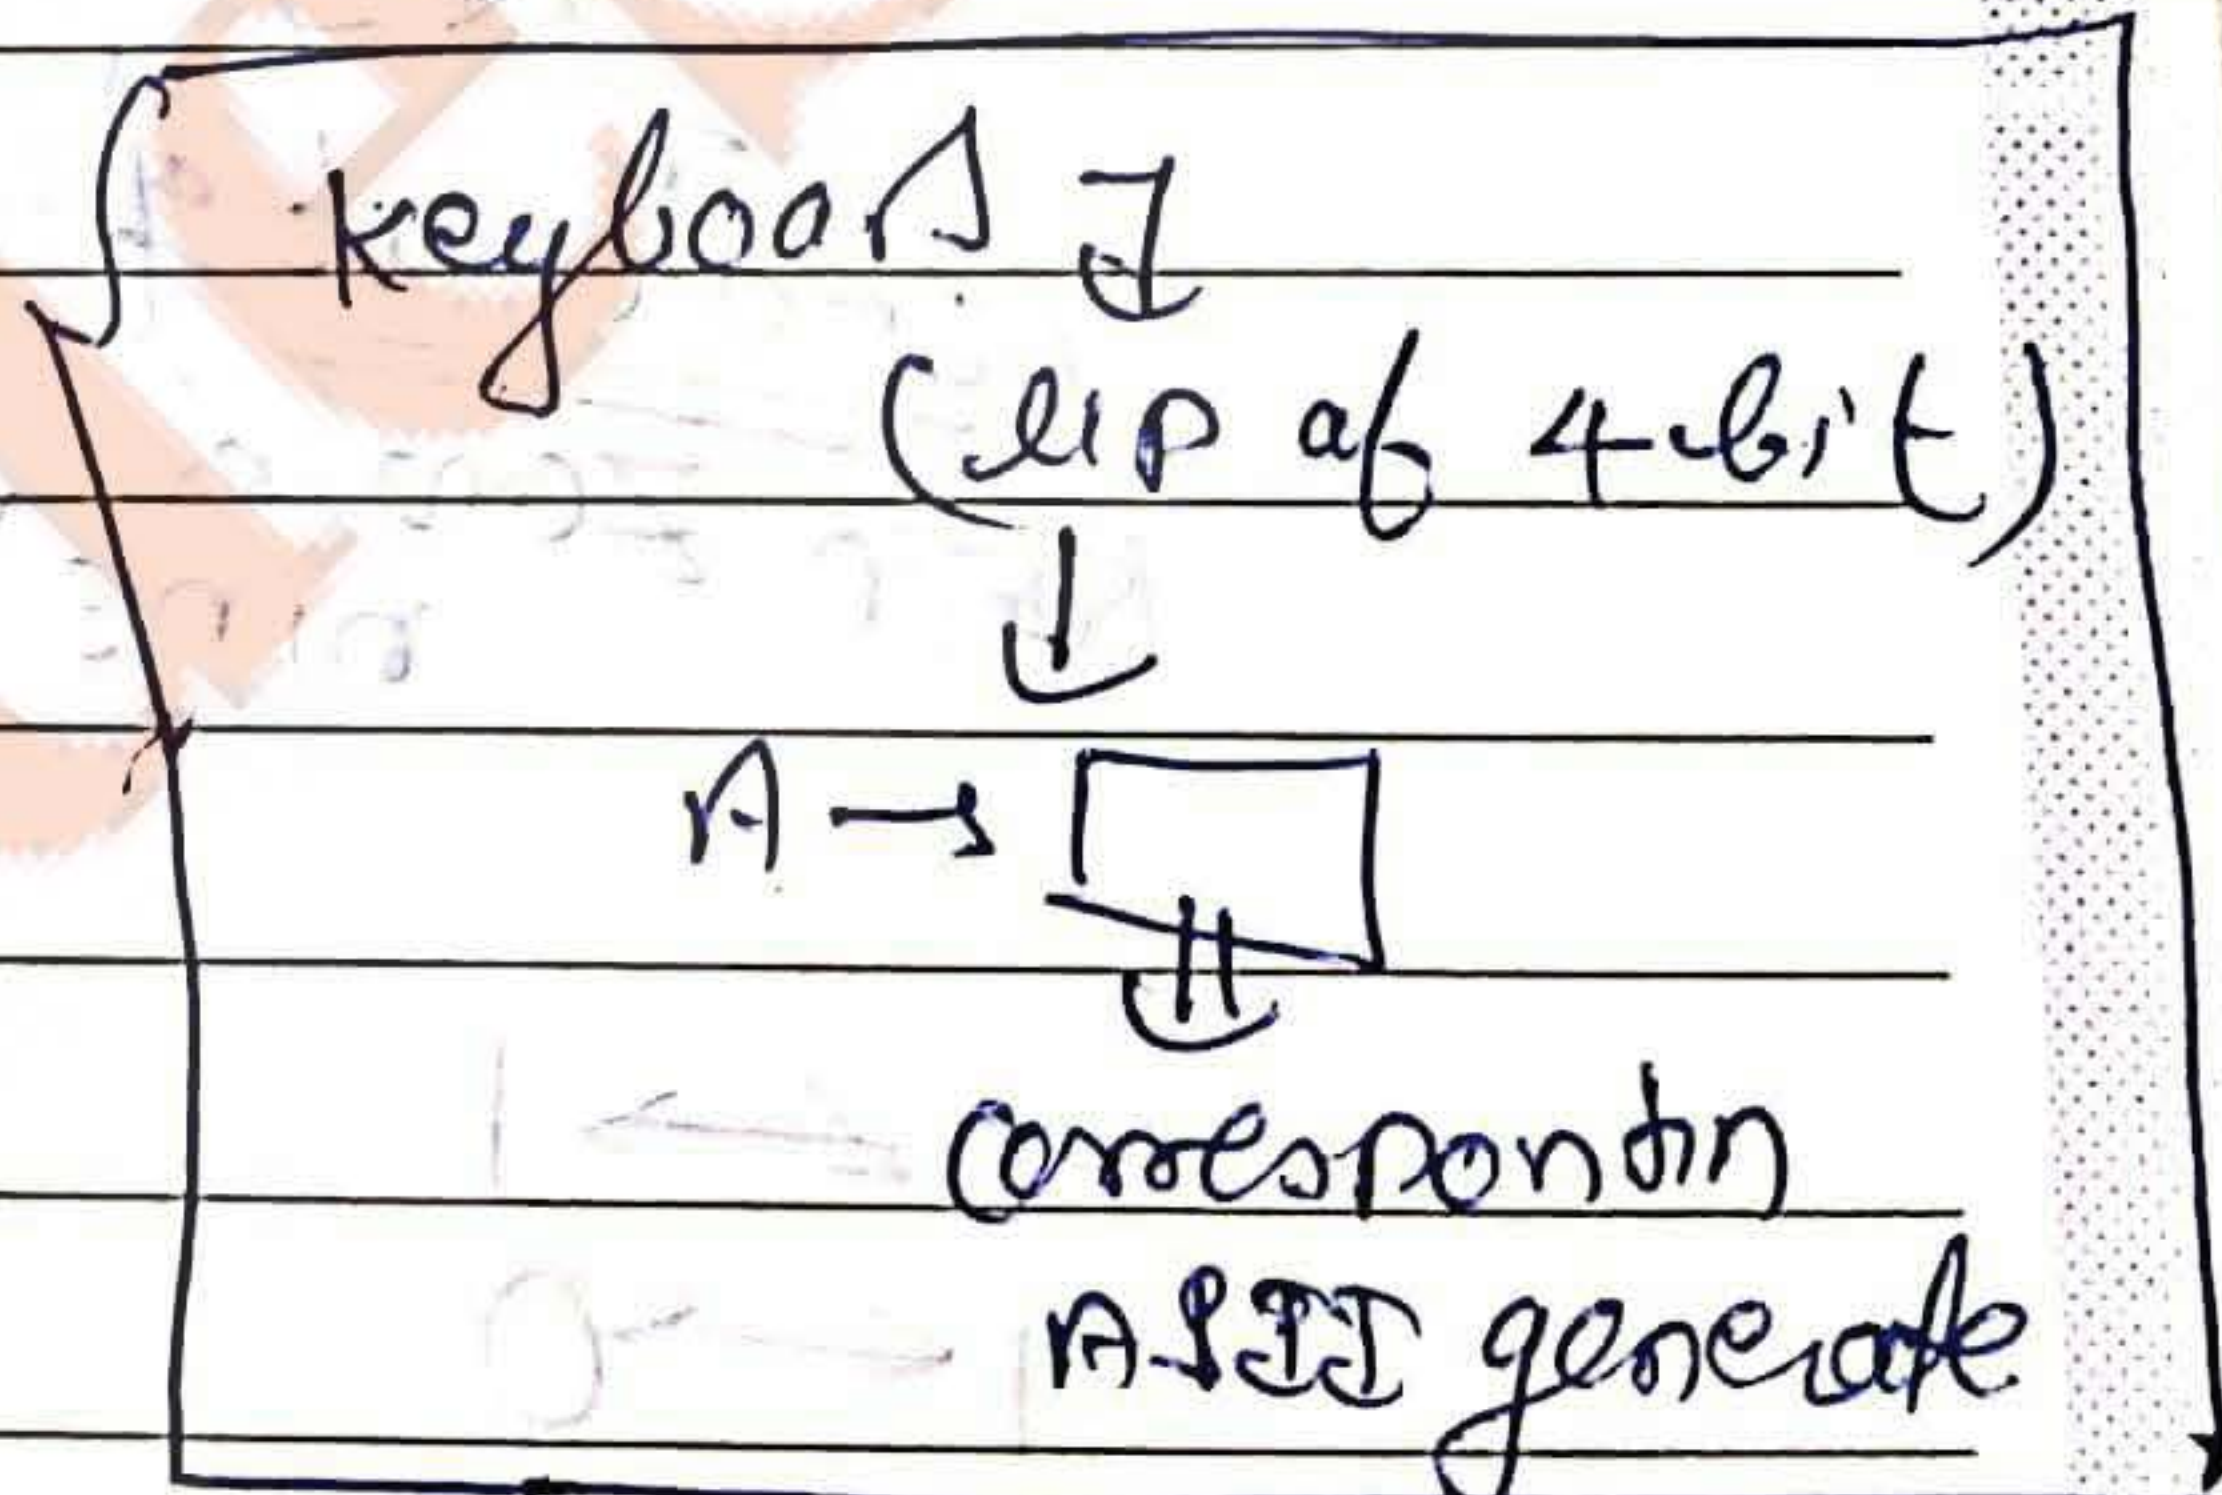 keyboard
(μp of 4-bit)
A →
correspontin
ASII generate